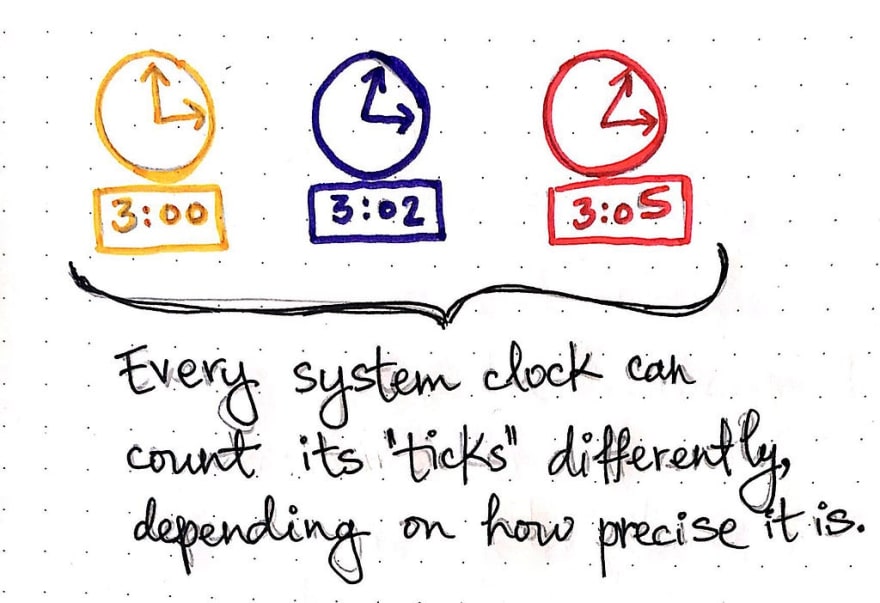 3:00 3:02 3:05
Every system clock can
count its "ticks" differently,
depending on how precise it is.